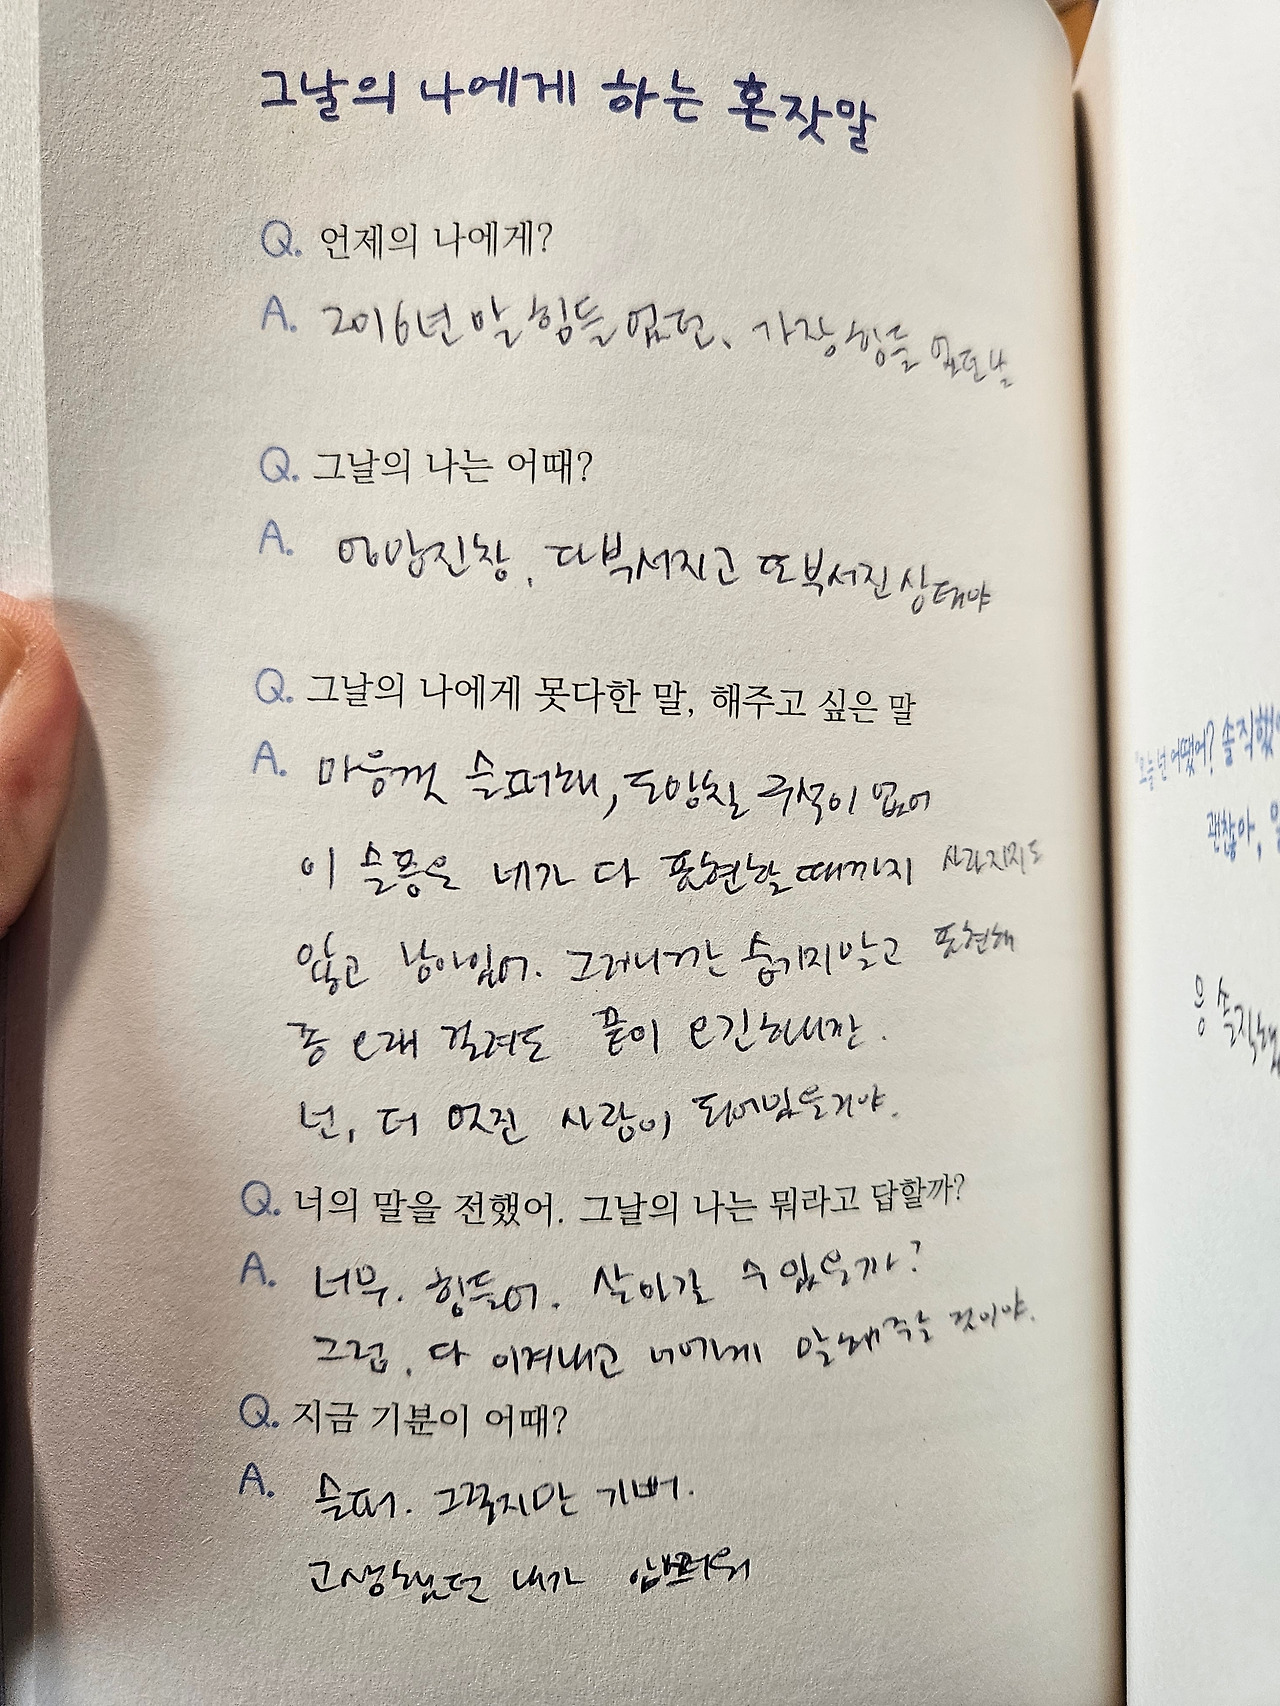 그날의 나에게 하는 혼잣말
Q. 언제의 나에게?
A. 2016년 말 힘들었던, 가장 힘들었던 날
Q. 그날의 나는 어때?
A. 엉망진창, 다 부서지고 또 부서진 상태야
Q. 그날의 나에게 못다한 말, 해주고 싶은 말
A. 마음껏 슬퍼해, 도망칠 구석이 없어
이 슬픔은 네가 다 표현할 때까지 사라지지도
않고 남아있어. 그러니까 숨기지 말고 표현해
좀 오래 걸려도 끝이 오긴 하니깐.
넌, 더 멋진 사람이 되어있을거야.
Q. 너의 말을 전했어. 그날의 나는 뭐라고 답할까?
A. 너무. 힘들어. 살아갈 수 있을까?
그럼, 다 이겨내고 너에게 말해주는 것이야.
Q. 지금 기분이 어때?
A. 슬퍼. 그렇지만 기뻐.
고생했던 내가
"오늘 넌 어땠어? 솔직했
괜찮아,
응 솔직했